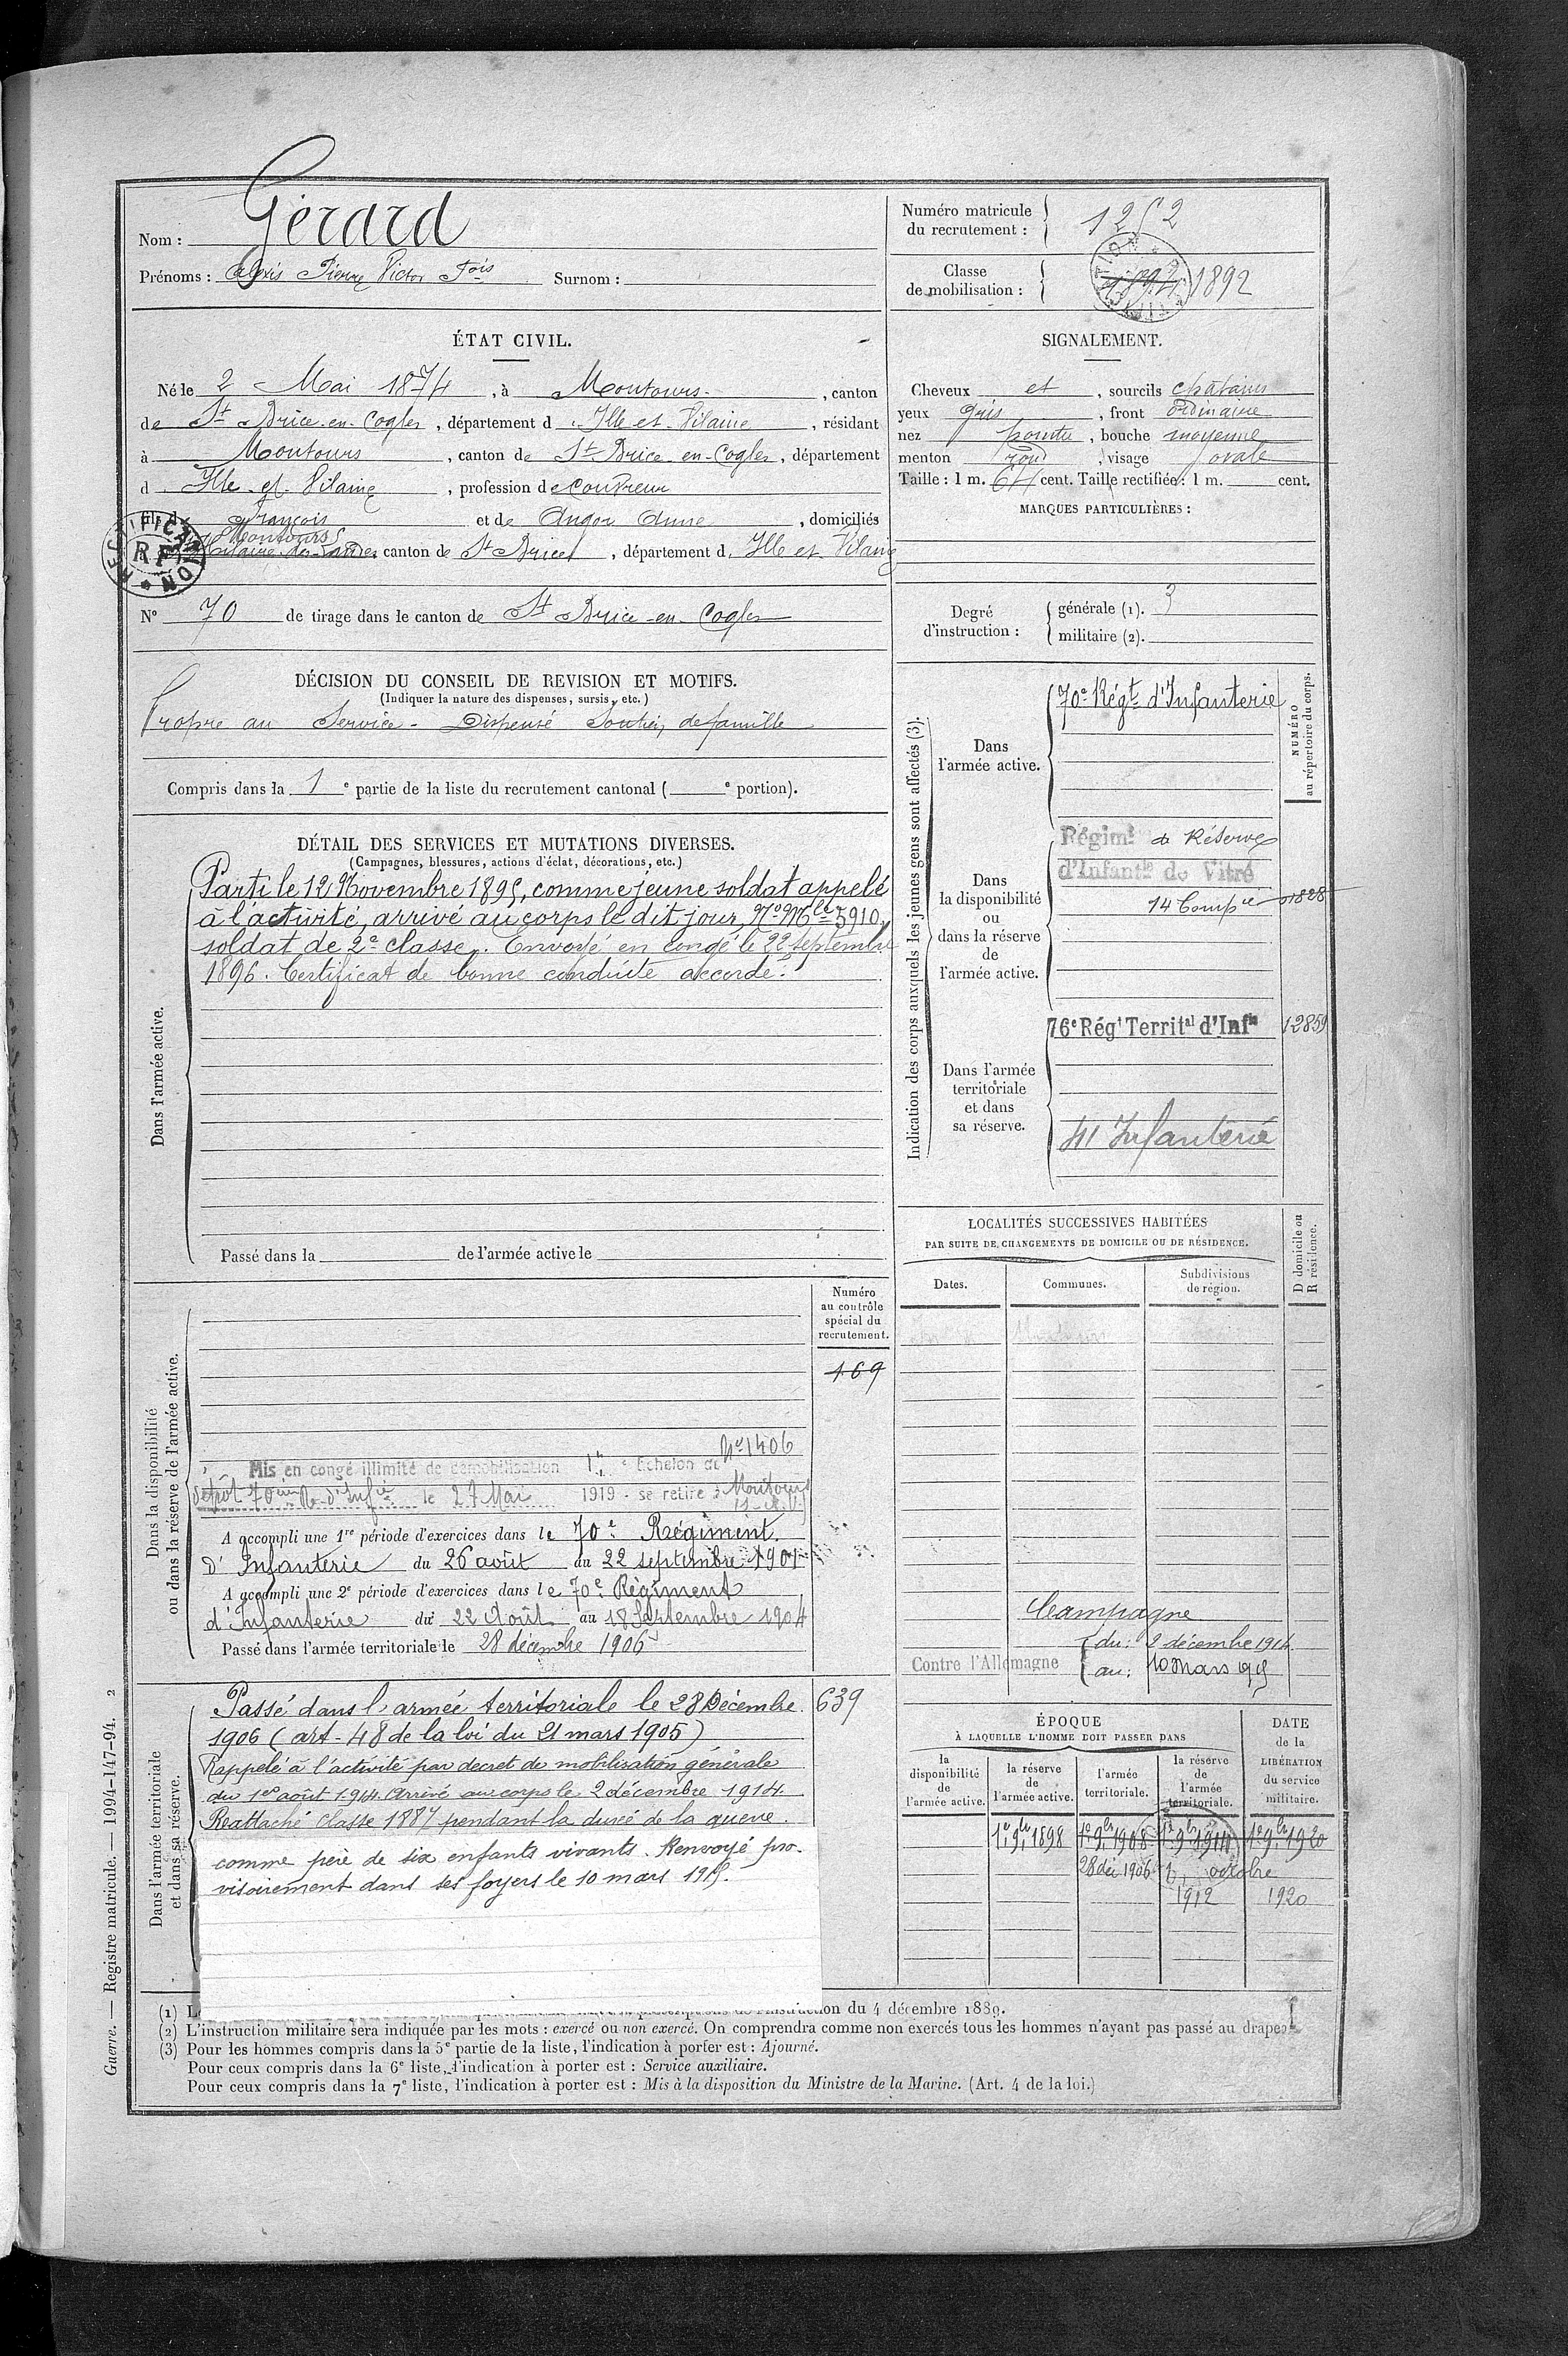 Nom : Gérard
Prénoms : Alexis Pierre Victor Fois Surnom :
Numéro matricule du recrutement : 1252
Classe de mobilisation : 1894 1892
ÉTAT CIVIL.
Né le 2 Mai 1874, à Montours, canton
de St Brice-en-Cogles, département d'Ille et Vilaine, résidant
à Montours, canton de St Brice-en-Cogles, département
d'Ille et Vilaine, profession de Couvreur
fils de François et de Angor Anne, domiciliés
Montours
Hilaire-des-Landes canton de St Brice, département d. Ille et Vilaine
RECTIFICATION RF
N° 70 de tirage dans le canton de St Brice-en-Cogles
SIGNALEMENT.
Cheveux et, sourcils chatains
yeux gris, front ordinaire
nez pointu, bouche moyenne
menton rond, visage ovale
Taille : 1 m. 64 cent. Taille rectifiée : 1 m. cent.
MARQUES PARTICULIÈRES :
Degré d'instruction :
générale (1). 3
militaire (2).
DÉCISION DU CONSEIL DE REVISION ET MOTIFS.
(Indiquer la nature des dispenses, sursis, etc.)
Propre au Service - Dispensé Soutien de famille
Compris dans la 1e partie de la liste du recrutement cantonal ( e portion).
DÉTAIL DES SERVICES ET MUTATIONS DIVERSES.
(Campagnes, blessures, actions d'éclat, décorations, etc.)
Dans l'armée active.
Parti le 12 Novembre 1895, comme jeune soldat appelé
à l'activité, arrivé au corps le dit jour, No Mle 5910,
soldat de 2e classe. Envoyé en congé le 22 septembre
1896. Certificat de bonne conduite accordé.
Passé dans la de l'armée active le
Indication des corps auxquels les jeunes gens sont affectés (3).
NUMÉRO au répertoire du corps.
Dans l'armée active.
70e Régt d'Infanterie
Dans la disponibilité ou dans la réserve de l'armée active.
Régimt de Réserve
d'Infantie de Vitré
14 Compie 01828
Dans l'armée territoriale et dans sa réserve.
76e Régt Territal d'Infie 12859
41 Infanterie
LOCALITÉS SUCCESSIVES HABITÉES
PAR SUITE DE CHANGEMENTS DE DOMICILE OU DE RÉSIDENCE.
Dates. Communes. Subdivisions de région. D domicile ou R résidence.
Campagne
Contre l'Allemagne
du : 2 décembre 1914
au : 10 Mars 1915
Dans la disponibilité ou dans la réserve de l'armée active.
Numéro au contrôle spécial du recrutement.
169
No 1406
Mis en congé illimité de démobilisation Echelon
Dépôt 70ième R. d'Infie le 27 Mai 1919 - se retire à Montours
A accompli une 1re période d'exercices dans le 70e Régiment
d'Infanterie du 26 août au 22 septembre 1901
A accompli une 2e période d'exercices dans le 70e Régiment
d'Infanterie du 22 Août au 18 Septembre 1904
Passé dans l'armée territoriale le 28 décembre 1906
Dans l'armée territoriale et dans sa réserve.
Passé dans l'armée territoriale le 28 Décembre 639
1906 (art. 48 de la loi du 21 mars 1905)
Rappelé à l'activité par decret de mobilisation générale
du 1er août 1914. Arrivé au corps le 2 décembre 1914.
Reattaché Classe 1887 pendant la durée de la guerre.
comme père de six enfants vivants. Renvoyé pro-
visoirement dans ses foyers le 10 mars 1915.
ÉPOQUE
À LAQUELLE L'HOMME DOIT PASSER DANS
DATE de la LIBÉRATION du service militaire.
la disponibilité de l'armée active.
la réserve de l'armée active.
l'armée territoriale.
la réserve de l'armée territoriale.
1er 9bre 1898 1er 9bre 1908 1er 9bre 1914 1er 9bre 1920
28 déc 1906 octobre
1912 1920
(1) L on du 4 décembre 1889.
(2) L'instruction militaire sera indiquée par les mots : exercé ou non exercé. On comprendra comme non exercés tous les hommes n'ayant pas passé au drapeau
(3) Pour les hommes compris dans la 5e partie de la liste, l'indication à porter est : Ajourné.
Pour ceux compris dans la 6e liste, l'indication à porter est : Service auxiliaire.
Pour ceux compris dans la 7e liste, l'indication à porter est : Mis à la disposition du Ministre de la Marine. (Art. 4 de la loi.)
Guerre. — Registre matricule. — 1994-147-94. 2